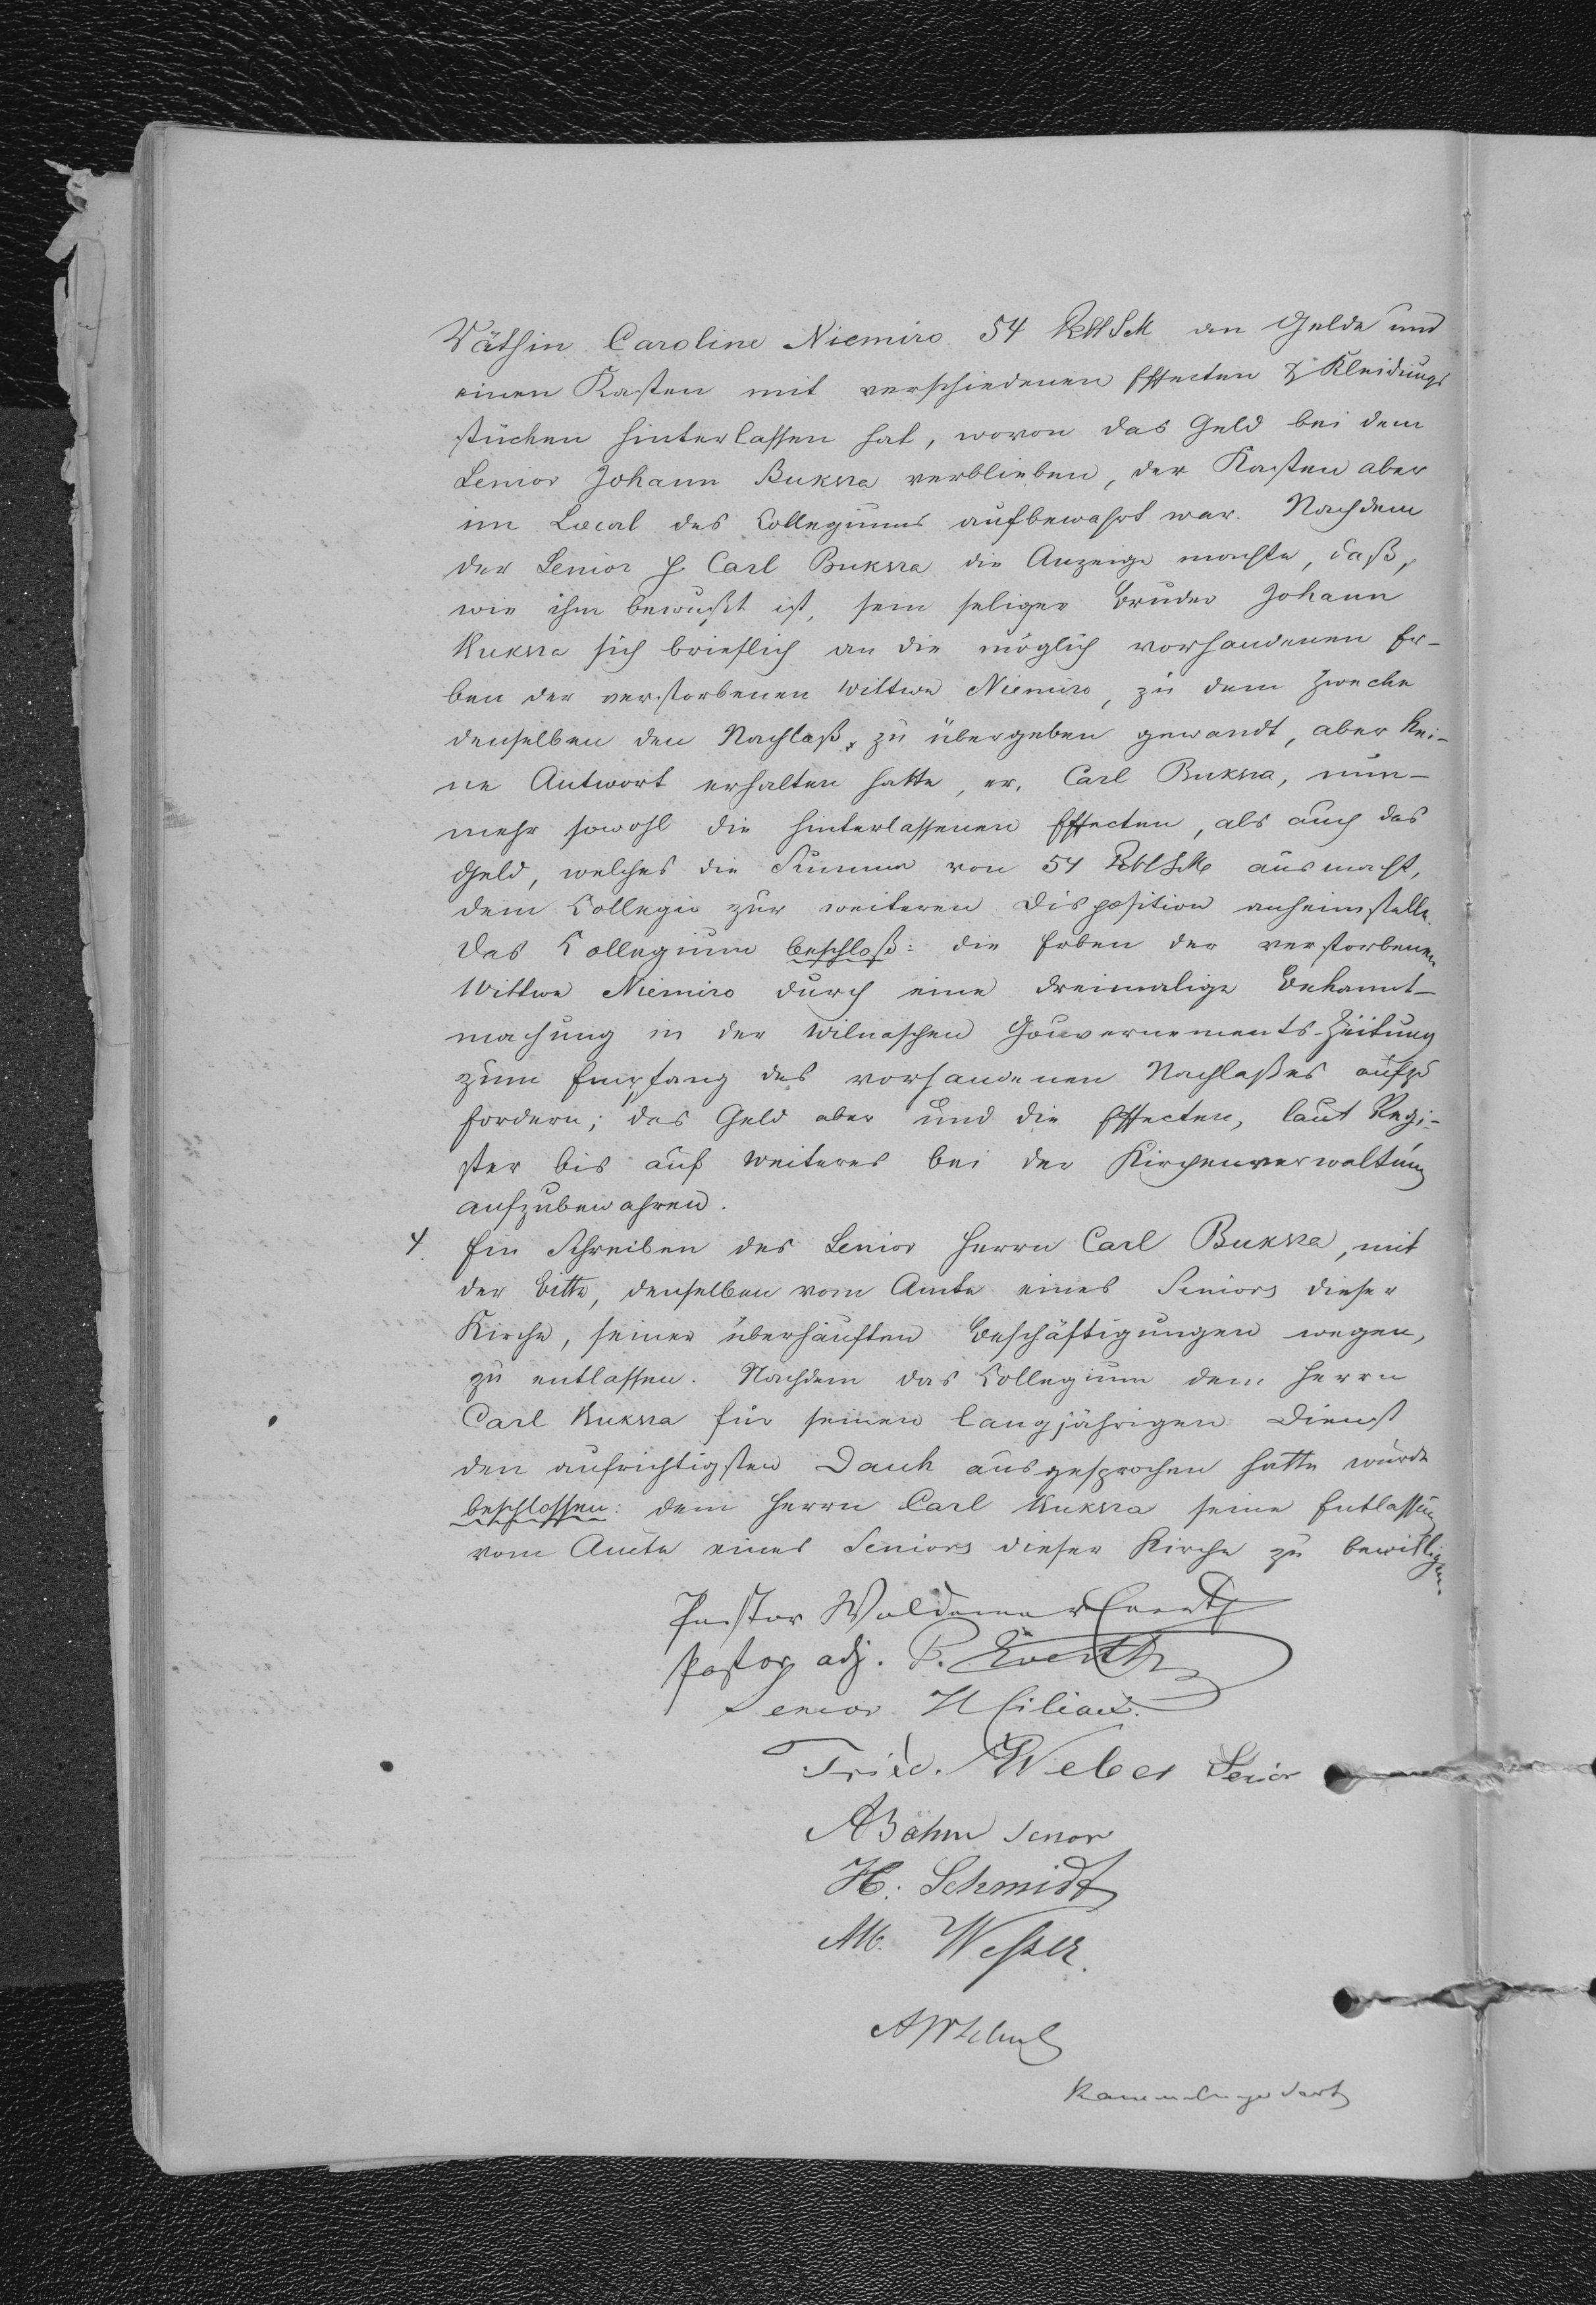 Räthin Caroline Niemiro 54 Rbl SM an Gelde und
einen Kasten mit verschiedenen Effecten & Kleidungs
stücken hinterlassen hat, wovon das Geld bei dem
Senior Johann Buksza verblieben, der Kasten aber
im Local des Collegiums aufbewahrt war. Nachdem
der Senior H. Carl Buksza die Anzeige machte, daß,
wie ihm bewußt ist, sein seliger Bruder Johann
Buksza sich brieflich an die möglich vorhandenen Er-
ben der verstorbenen Wittwe Niemiro, zu dem Zwecke
denselben den Nachlaß zu übergeben gewandt, aber kei-
ne Antwort erhalten hatte, er, Carl Buksza, nun-
mehr sowohl die hinterlassenen Effecten, als auch das
Geld, welches die Summe von 54 Rbl SM ausmacht,
dem Collegio zur weiteren Disposition anheimstelle.
Das Collegium beschloß: die Erben der verstorbenen
Wittwe Niemiro durch eine dreimalige Bekannt-
machung in der Wilnaschen Gouvernements-Zeitung
zum Empfang des vorhandenen Nachlaßes aufzu
fordern; das Geld aber und die Effecten, laut Regi-
ster bis auf Weiteres bei der Kirchenverwaltung
aufzubewahren.
4. Ein Schreiben des Senior Herrn Carl Buksza, mit
der Bitte, denselben vom Amte eines Seniors dieser
Kirche, seiner überhäuften Beschäftigungen wegen,
zu entlassen. Nachdem das Collegium dem Herrn
Carl Buksza für seinen langjährigen Dienst
den aufrichtigsten Dank ausgesprochen hatte wurde
beschlossen: dem Herrn Carl Buksza seine Entlassung
vom Amte eines Seniors dieser Kirche zu bewilligen.
Pastor Woldemar Everth
Pastor adj. P. Everth
Senior
Fried. Weber Senior
A Böhm Senior
H. Schmidt